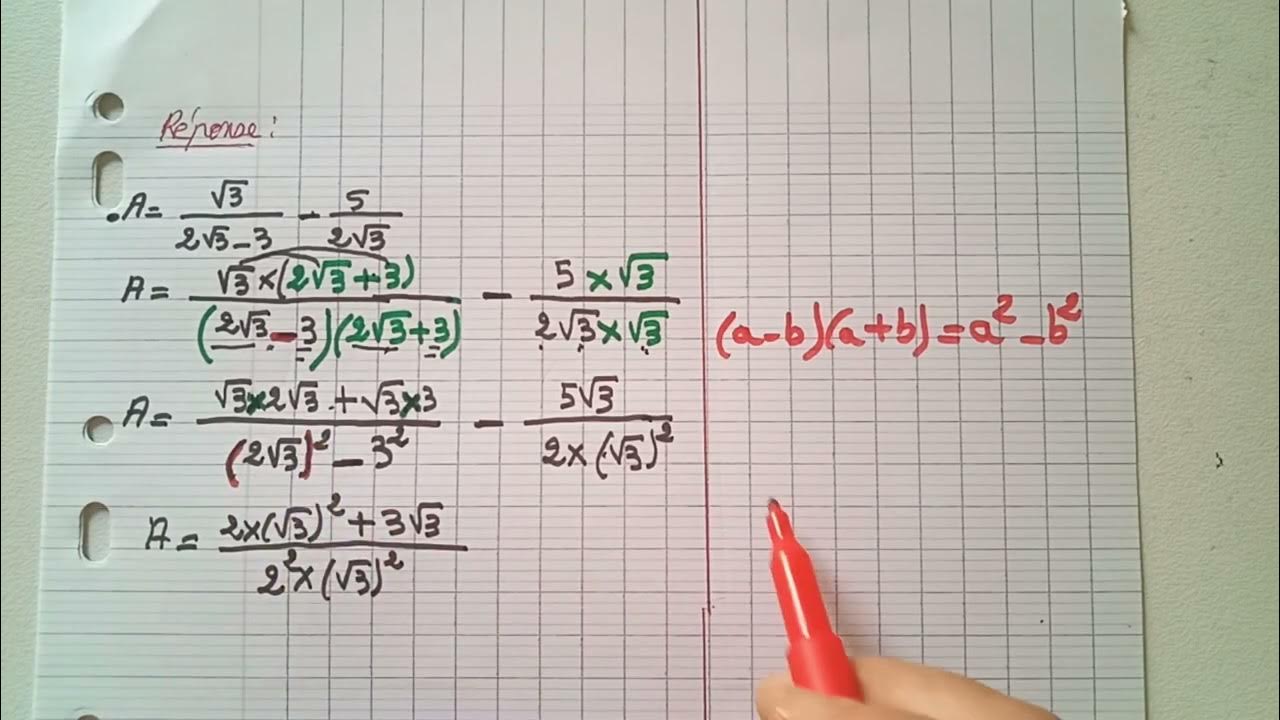 Réponse :
A = √3/(2√3 - 3) - 5/(2√3)
A = (√3 × (2√3 + 3))/((2√3 - 3)(2√3 + 3)) - (5 × √3)/(2√3 × √3)
(a - b)(a + b) = a² - b²
A = (√3 × 2√3 + √3 × 3)/((2√3)² - 3²) - 5√3/(2 × (√3)²)
A = (2 × (√3)² + 3√3)/(2² × (√3)²)